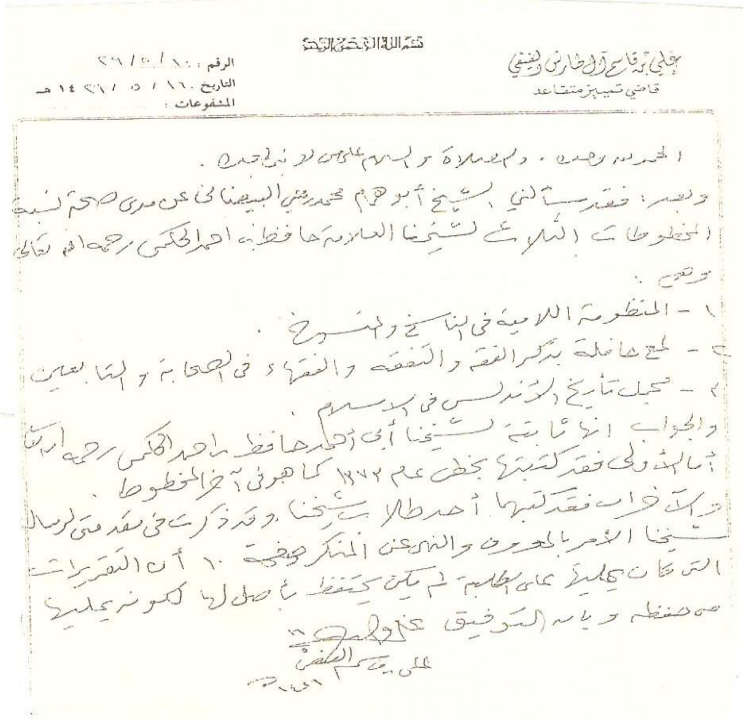 بسم الله الرحمن الرحيم
علي بن قاسم آل طارش الفيفي
قاضي تمييز متقاعد
الرقم :
التاريخ : ١٦ / ٥ / ١٤٢٦ هـ
المشفوعات :
الحمد لله وحده . والصلاة والسلام على من لا نبي بعده .
وبعد : فقد سألني الشيخ أبو همام محمد بن علي البيضاني عن مدى صحة نسبة
المخطوطات الثلاث لشيخنا العلامة حافظ بن احمد الحكمي رحمه الله تعالى
وهي :
١ - المنظومة اللامية في الناسخ والمنسوخ .
٢ - لمح حافلة بذكر الفقه والتفقه والفقهاء في الصحابة والتابعين
٣ - مجمل تأريخ الأندلس في الاسلام .
والجواب انها ثابتة لشيخنا أبي أحمد حافظ بن احمد الحكمي رحمه الله
أما الأولى فقد كتبتها بخطي عام ١٣٧٣ كما هو في آخر المخطوط .
والآخران فقد كتبهما أحد طلاب شيخنا . وقد ذكرت في مقدمتي لرسالة
شيخنا الأمر بالمعروف والنهي عن المنكر صفحة ١٠ أن التقريرات
التي كان يمليها على الطلبة لم يكن يحتفظ بأصل لها لكونه يمليها
من حفظه وبالله التوفيق
علي بن قاسم الفيفي